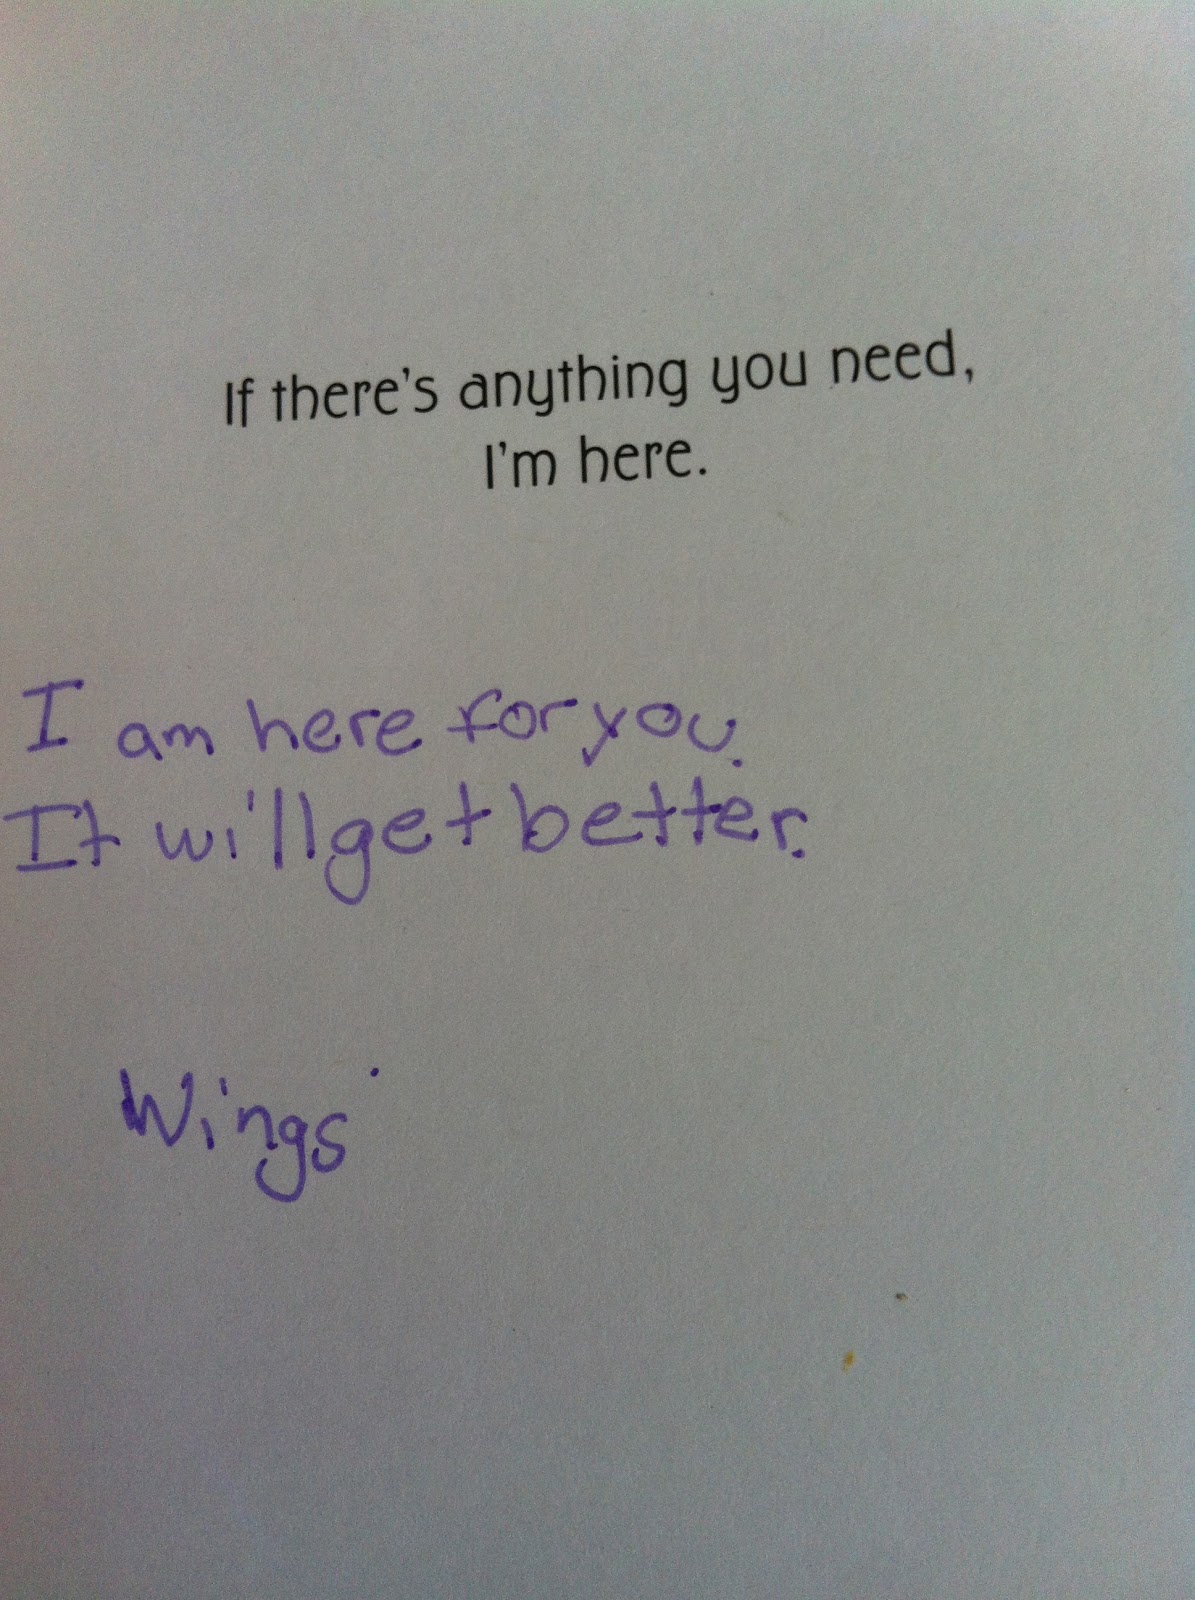 If there's anything you need,
I'm here.
I am here for you.
It will get better.
Wings